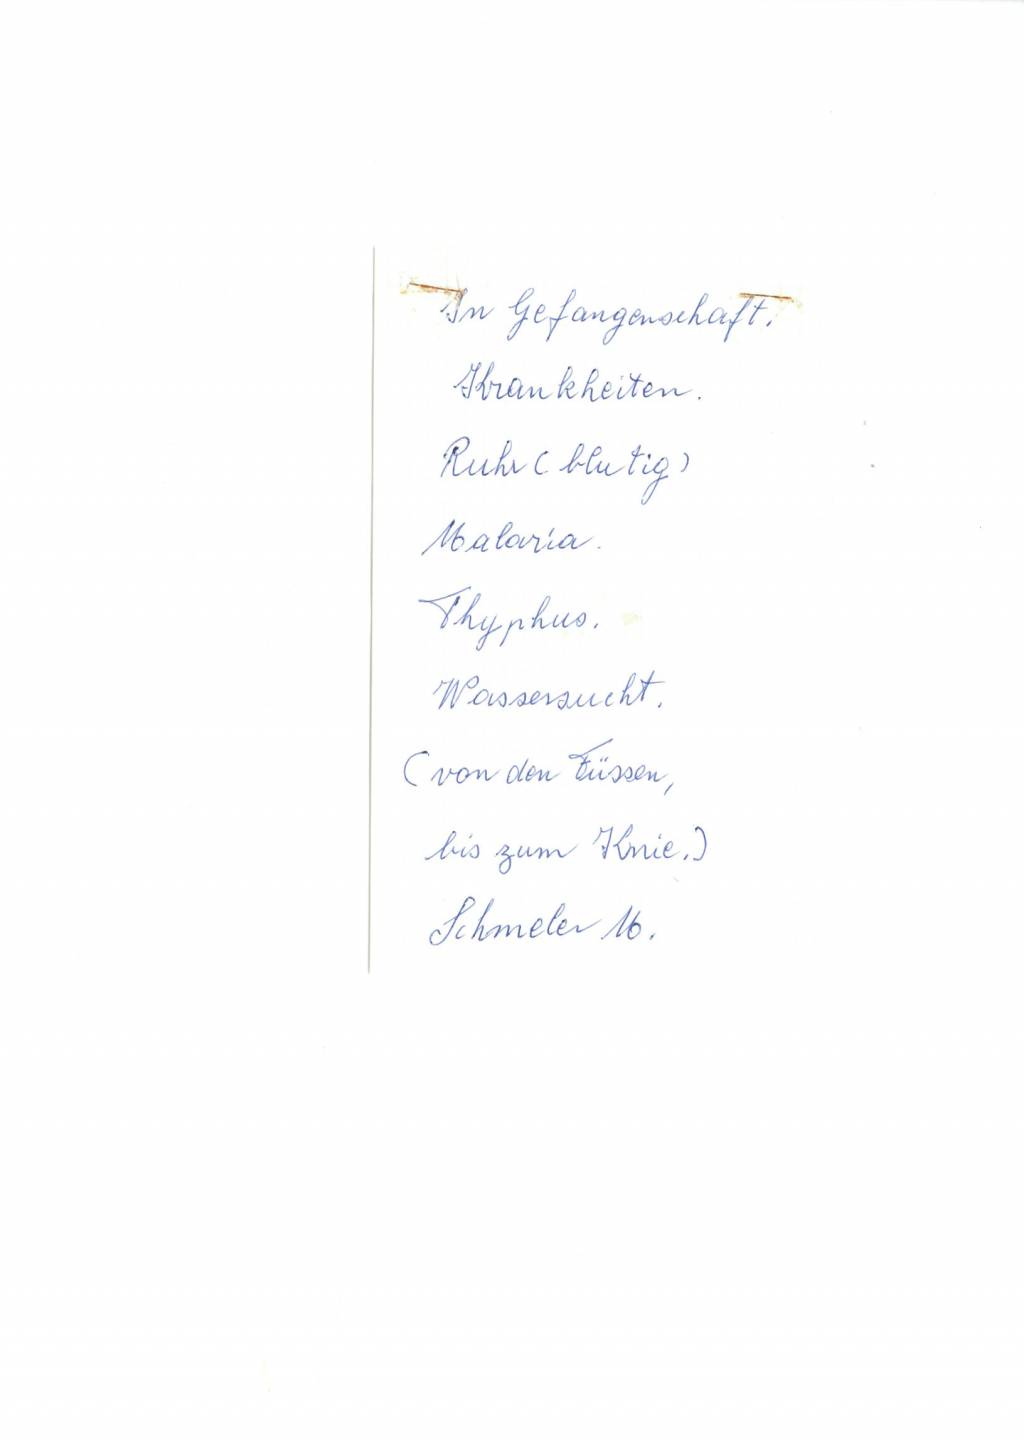 In Gefangenschaft.
Krankheiten.
Ruhr (blutig)
Malaria.
Thyphus.
Wassersucht.
(von den Füssen,
bis zum Knie.)
Schmeler M.